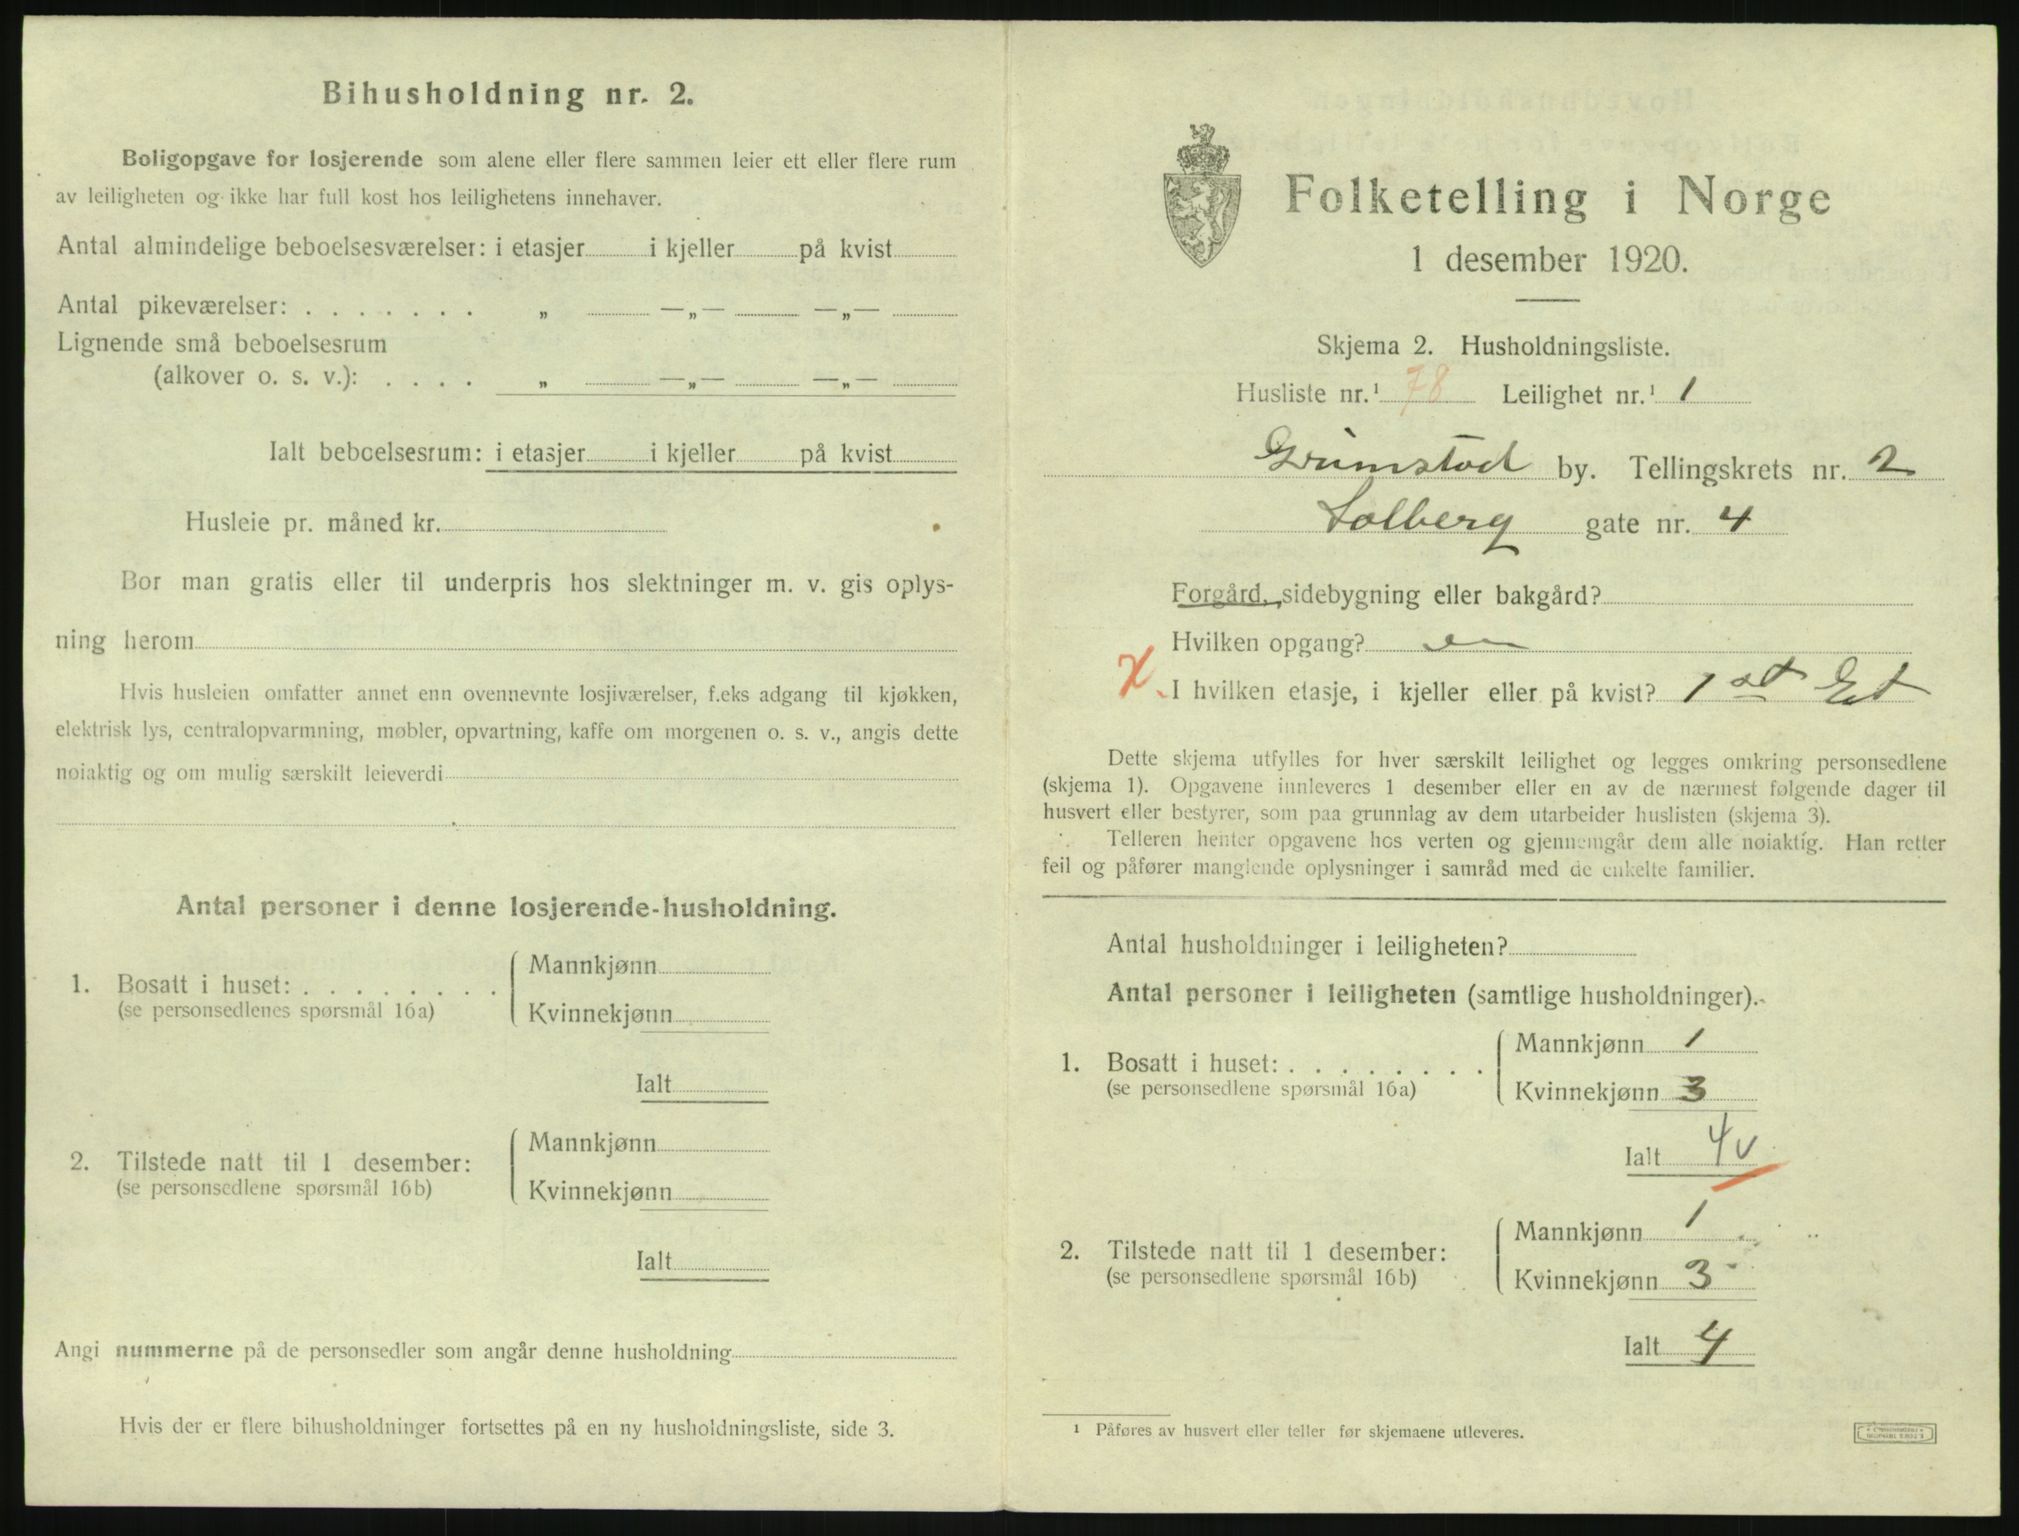 Bihusholdning nr. 2.
Boligopgave for losjerende som alene eller flere sammen leier ett eller flere rum
av leiligheten og ikke har full kost hos leilighetens innehaver.
Antal almindelige beboelsesværelser: i etasjer i kjeller på kvist
Antal pikeværelser: . . . . . . . „ —„— —„—
Lignende små beboelsesrum
(alkover o. s. v.): . . . . „ —„— —„—
Ialt beboelsesrum: i etasjer i kjeller på kvist
Husleie pr. måned kr.
Bor man gratis eller til underpris hos slektninger m. v. gis oplys-
ning herom
Hvis husleien omfatter annet enn ovennevnte losjiværelser, f.eks adgang til kjøkken,
elektrisk lys, centralopvarmning, møbler, opvartning, kaffe om morgenen o. s. v., angis dette
nøiaktig og om mulig særskilt leieverdi
Antal personer i denne losjerende-husholdning.
1. Bosatt i huset: . . . . . . . . Mannkjønn
(se personsedlenes spørsmål 16a) Kvinnekjønn
Ialt
2. Tilstede natt til 1 desember: Mannkjønn
(se personsedlene spørsmål 16b) Kvinnekjønn
Ialt
Angi nummerne på de personsedler som angår denne husholdning
Hvis der er flere bihusholdninger fortsettes på en ny husholdningsliste, side 3.
Folketelling i Norge
1 desember 1920.
Skjema 2. Husholdningsliste.
Husliste nr.¹ 78 Leilighet nr.¹ 1
Grimstad by. Tellingskrets nr. 2
Solberg gate nr. 4
Forgård, sidebygning eller bakgård?
Hvilken opgang? en
X I hvilken etasje, i kjeller eller på kvist? 1 st Et
Dette skjema utfylles for hver særskilt leilighet og legges omkring personsedlene
(skjema 1). Opgavene innleveres 1 desember eller en av de nærmest følgende dager til
husvert eller bestyrer, som paa grunnlag av dem utarbeider huslisten (skjema 3).
Telleren henter opgavene hos verten og gjennemgår dem alle nøiaktig. Han retter
feil og påfører manglende oplysninger i samråd med de enkelte familier.
Antal husholdninger i leiligheten?
Antal personer i leiligheten (samtlige husholdninger).
1. Bosatt i huset: . . . . . . . . Mannkjønn 1
(se personsedlene spørsmål 16a) Kvinnekjønn 3
Ialt 4 v
2. Tilstede natt til 1 desember: Mannkjønn 1
(se personsedlene spørsmål 16b) Kvinnekjønn 3
Ialt 4
¹ Påføres av husvert eller teller før skjemaene utleveres.